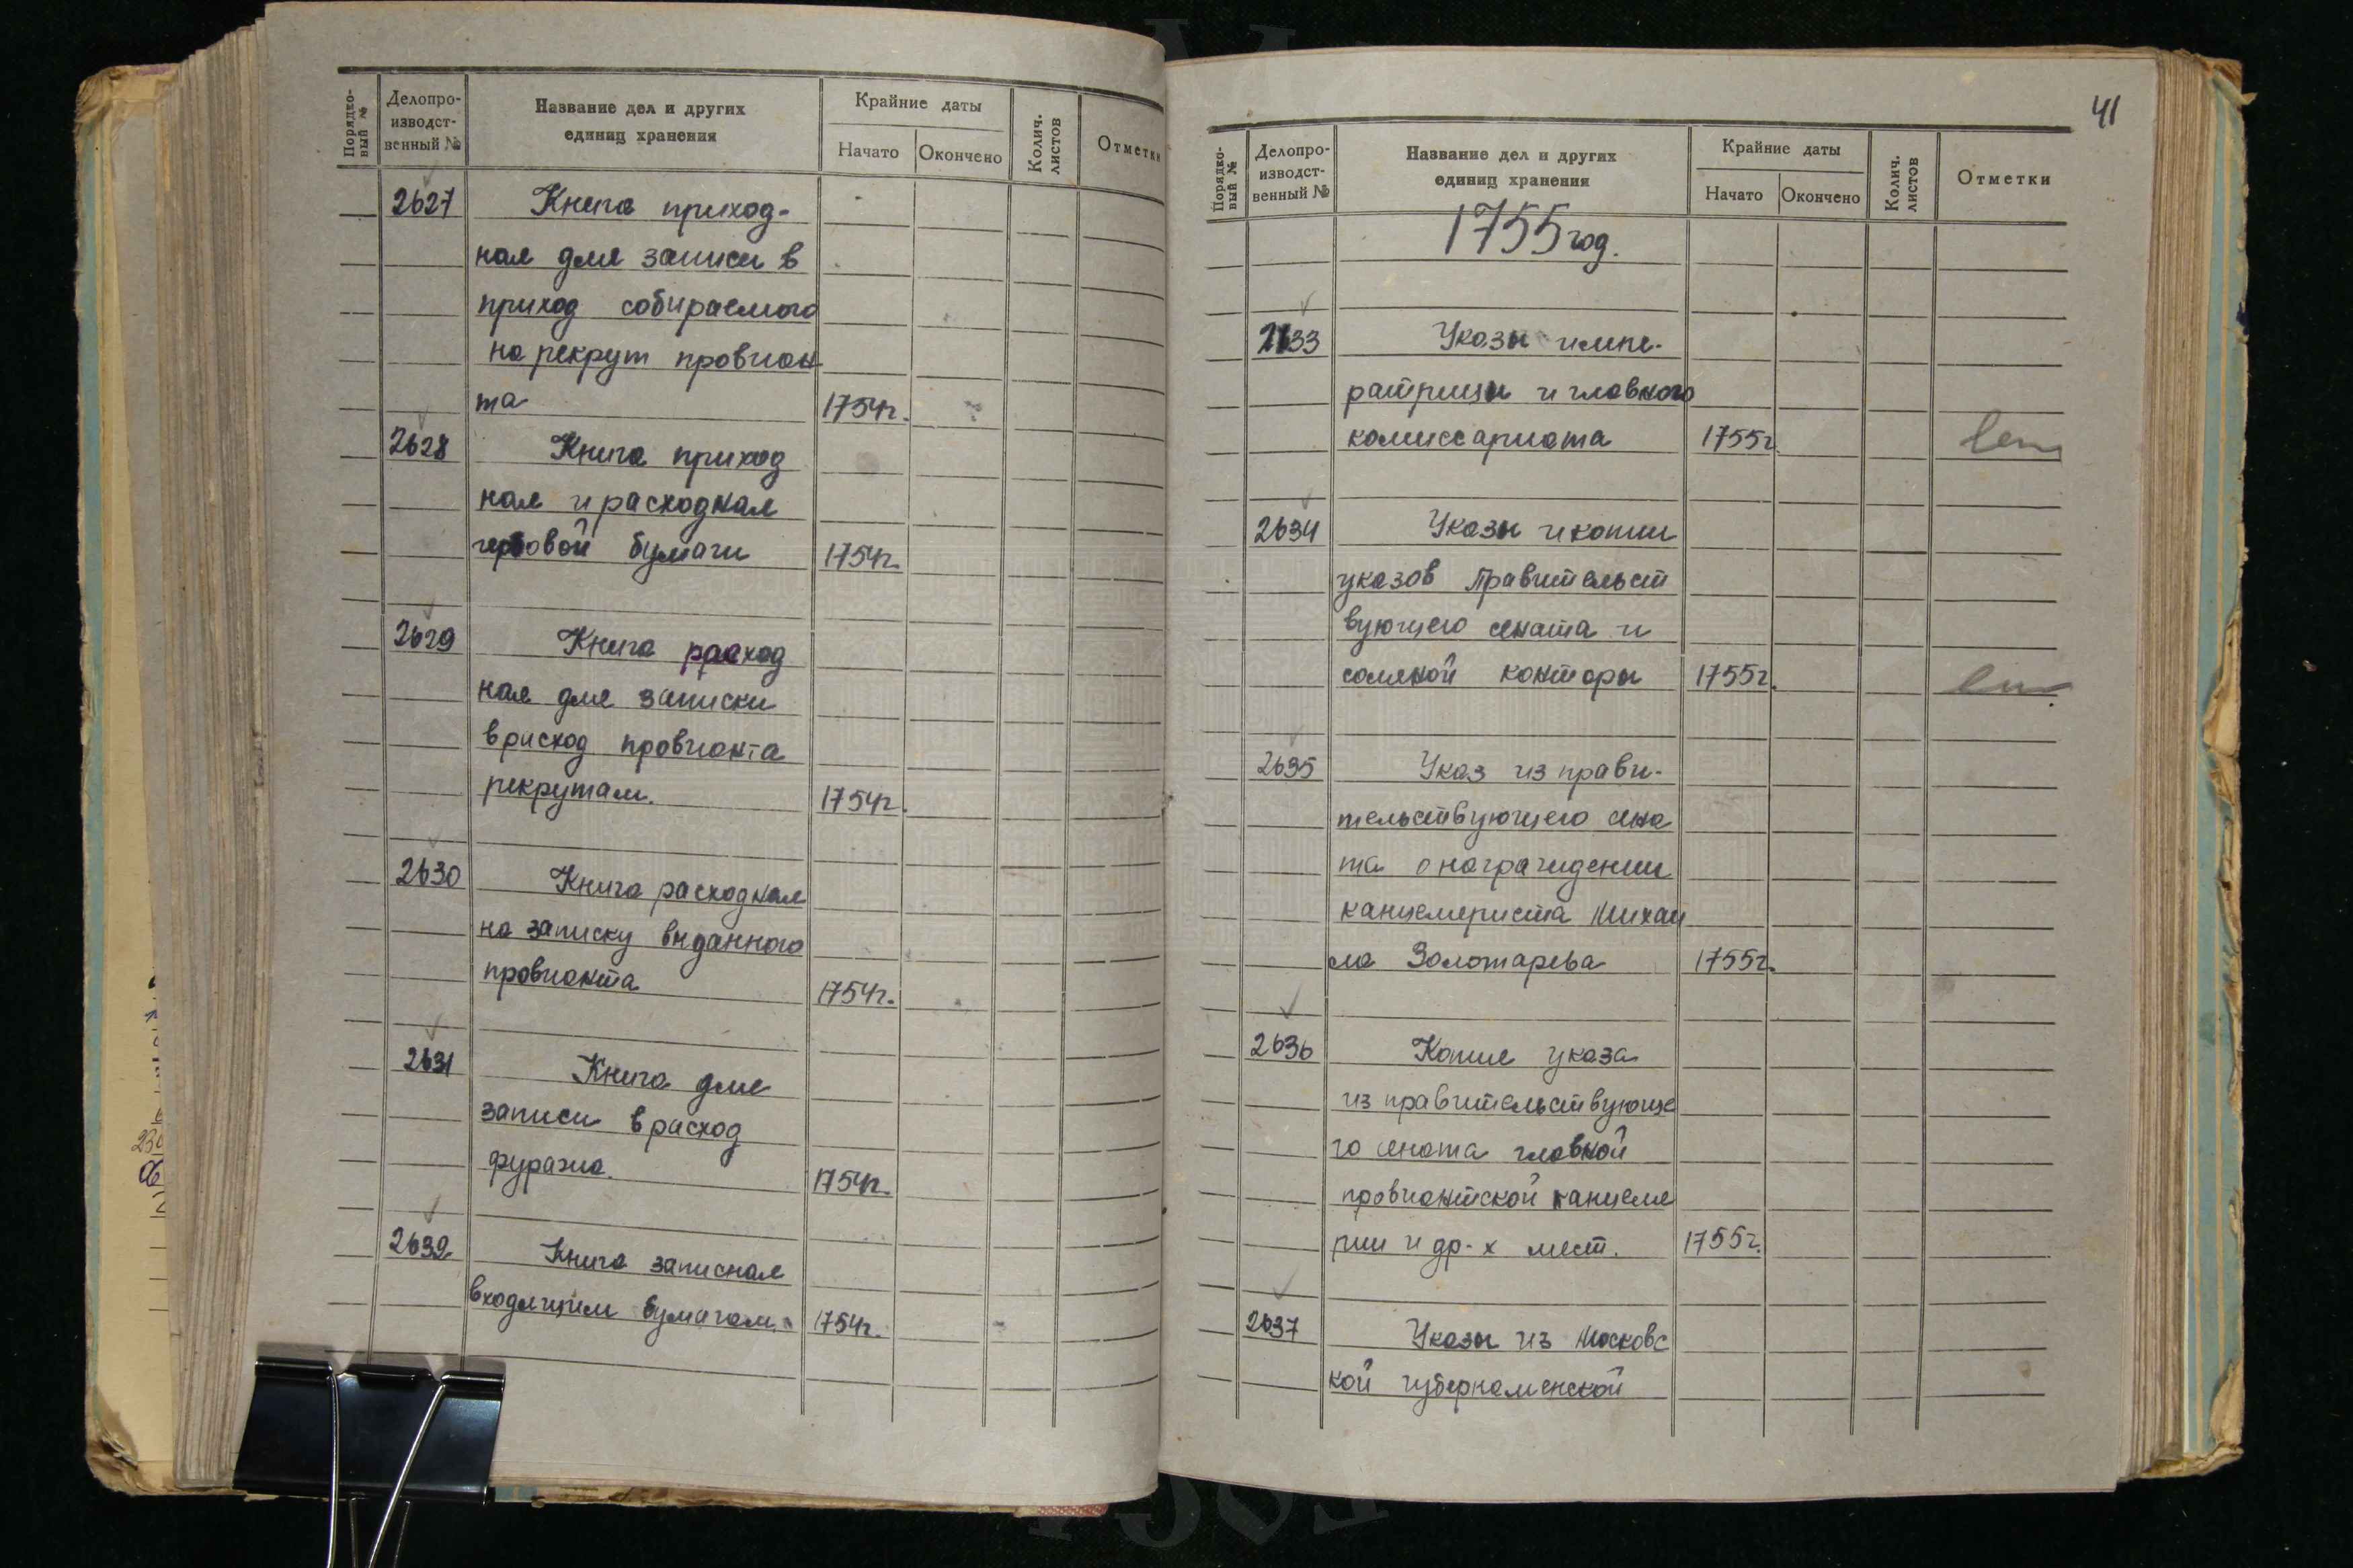 Порядко-
вый №
Делопро-
изводст-
венный №
Название дел и других
единиц хранения
Крайние даты
Начато
Окончено
Колич.
листов
Отметки
2627 Книга приход-
ная для записи в
приход собираемого
на рекрут провиан
та 1754г.
2628 Книга приход
ная и расходная
гербовой бумаги 1754г.
2629 Книга расход
ная для записки
в расход провианта
рекрутам. 1754г.
2630 Книга расходная
на записку выданного
провианта 1754г.
2631 Книга для
записи в расход
фуража. 1754г.
2632 Книга записная
входящим бумагам. 1754г.
41
Порядко-
вый №
Делопро-
изводст-
венный №
Название дел и других
единиц хранения
Крайние даты
Начато
Окончено
Колич.
листов
Отметки
1755 год.
2633 Указы импе-
ратрицы и главного
комиссариата 1755г.
2634 Указы и копии
указов Правительст
вующего сената и
соляной конторы 1755г.
2635 Указ из прави-
тельствующего сена
та о награждении
канцеляриста Михаи
ла Золотарева 1755г.
2636 Копия указа
из правительствующе
го сената главной
провиантской канцеля
рии и др-х мест. 1755г.
2637 Указы из Московс
кой губернаменской